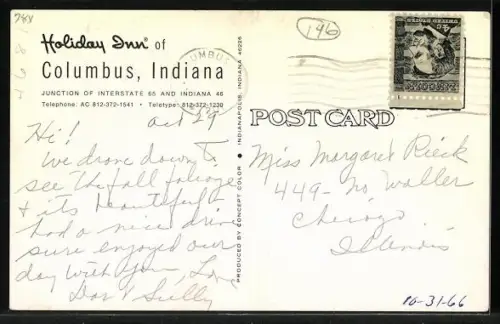 146
Holiday Inn of
Columbus, Indiana
JUNCTION OF INTERSTATE 65 AND INDIANA 46
Telephone: AC 812-372-1541 • Teletype: 812-372-1230
Oct 29
Hi!
We drove down to
see the fall foliage
& its beautiful &
had a nice drive
sure enjoyed our
day with you, Love
Dor & Sully
PRODUCED BY CONCEPT COLOR
INDIANAPOLIS, INDIANA 46226
POST CARD
Miss Margaret Rieck
449 - No, Waller
Chicago
Illinois
10-31-66